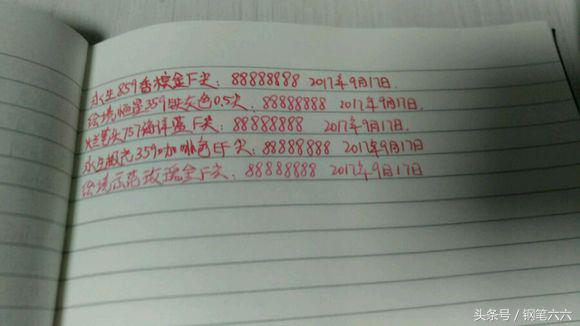 永生859香槟金F尖：88888888 2017年9月17日.
绘境恒星359银灰色0.5尖：88888888 2017年9月17日.
烂笔头757海洋蓝F尖：88888888 2017年9月17日.
永生极光359咖啡色EF尖：88888888 2017年9月17日
绘境示范玫瑰金F尖：88888888 2017年9月17日
头条号／钢笔六六